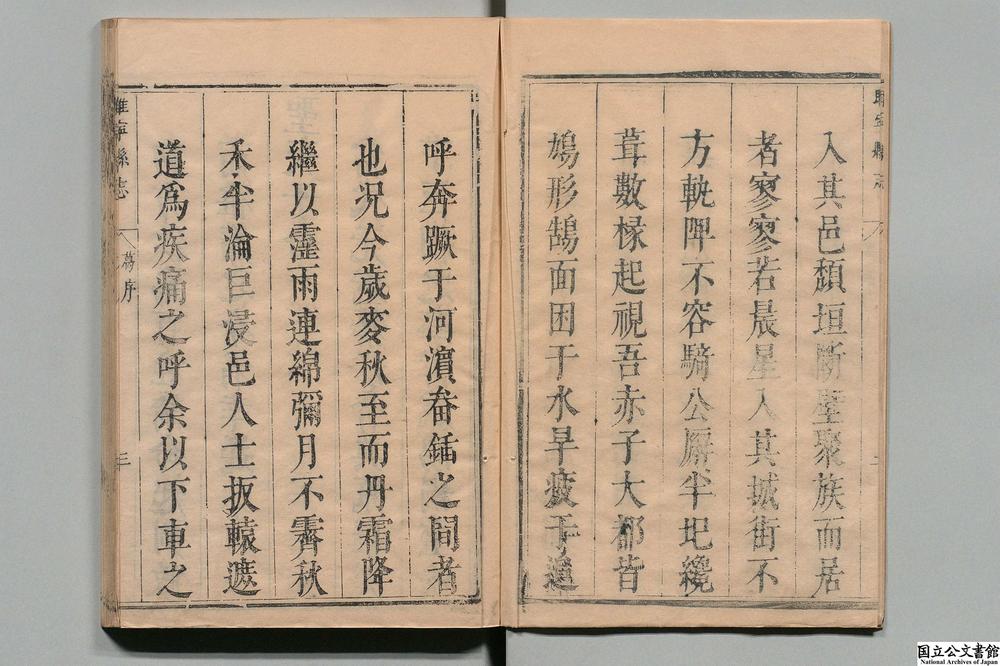 入其邑頹垣斷壁聚族而居
者寥寥若晨星入其城街不
方軌陴不容騎公廨半圮纔
葺數椽起視吾赤子大都皆
鳩形鵠面困于水旱疲于遄
呼奔蹶于河濵畚鍤之間者
也况今歲麥秋至而丹霜降
繼以霪雨連綿彌月不霽秋
禾半淪巨浸邑人士扳轅遮
道爲疾痛之呼余以下車之
睢寧縣志
序
三
国立公文書館
National Archives of Japan